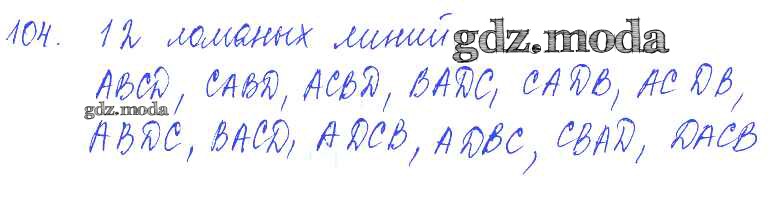 104. 12 ломаных линий gdz.moda
ABCD, CABD, ACBD, BADC, CADB, ACDB,
gdz.moda
ABDC, BACD, ADCB, ADBC, CBAD, DACB